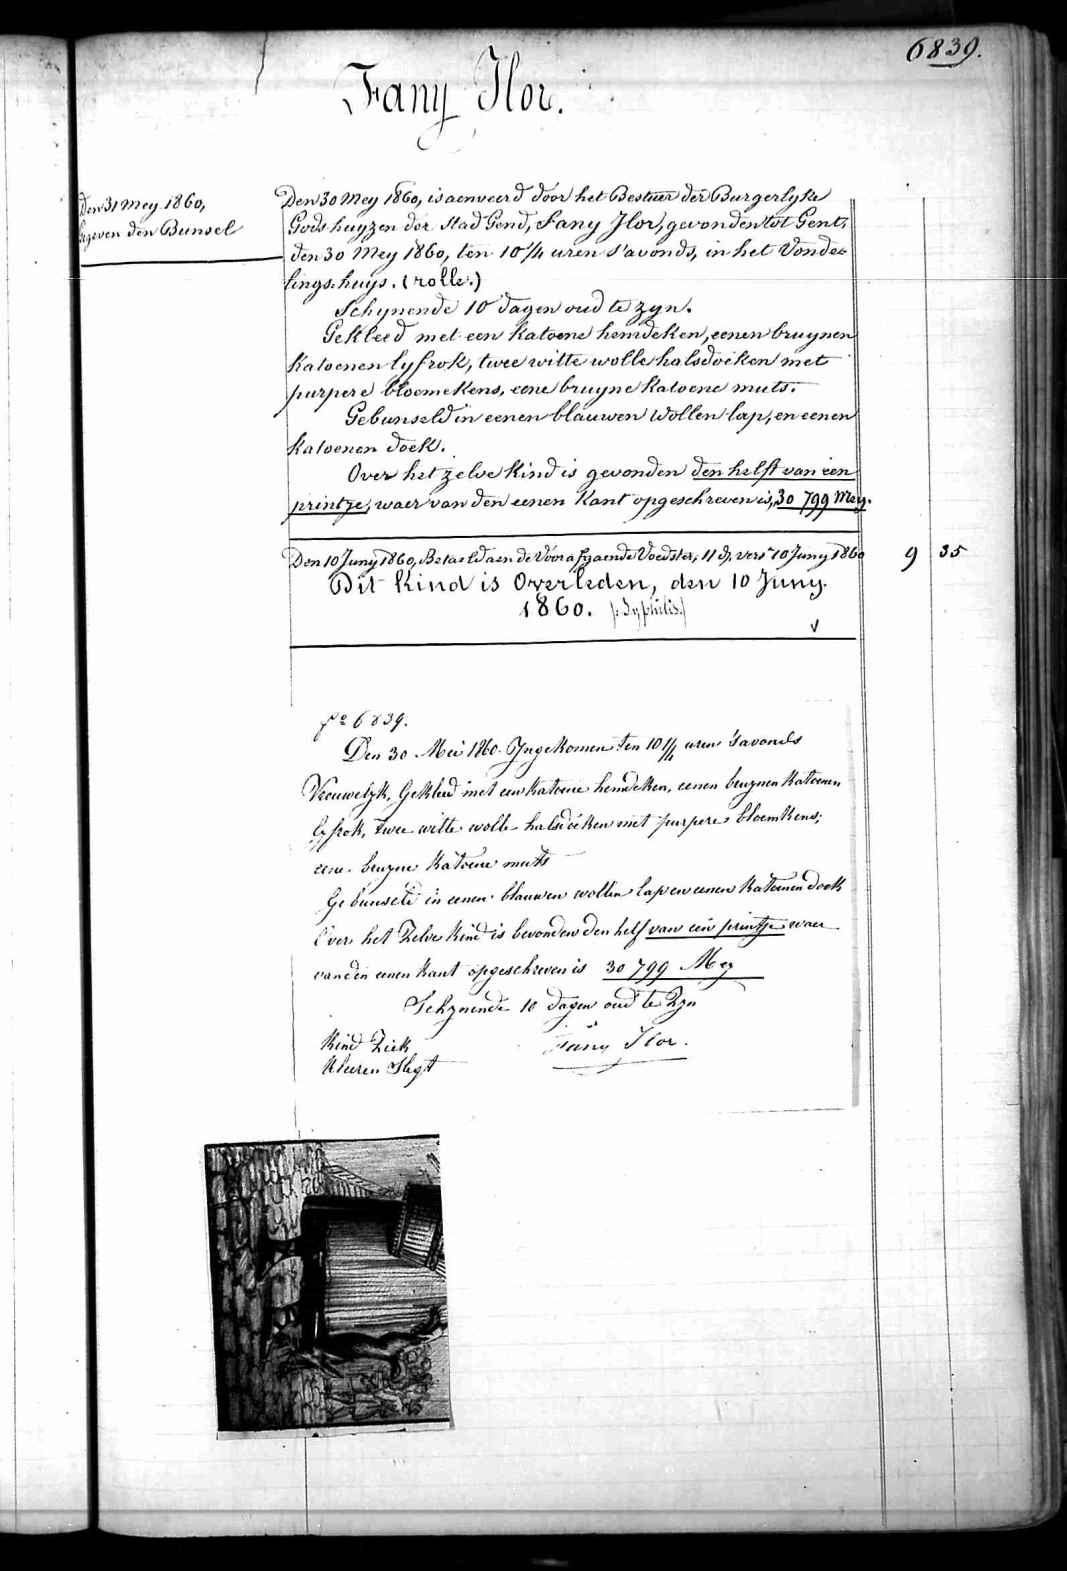 6839.
Fany Ilor.
Den 31 Mey 1860,
gegeven den Bunsel
Den 30 Mey 1860, is aenveerd door het Bestuer der Burgerlyke
Godshuyzen der Stad Gend, Fany Ilor, gevonden tot Gent,
den 30 Mey 1860, ten 10 1/4 uren s'avonds, in het Vonde-
lings-huys. (rolle.)
Schynende 10 dagen oud te zyn.
Gekleed met een katoene hemdeken, eenen bruynen
katoenen lyfrok, twee witte wolle halsdoeken met
purpere bloemekens, eene bruyne katoene muts.
Gebunseld in eenen blauwen wollen lap, en eenen
katoenen doek.
Over het zelve kind is gevonden den helft van een
printje, waer van den eenen kant opgeschreven is, 30 799 Mey.
Den 10 Juny 1860, Betaeld aen de Voorafgaende Voedster, 11 d, vers 10 Juny 1860 9 35
Dit kind is Overleden, den 10 Juny.
1860. (Syphilis.)
fo 6839.
Den 30 Mei 1860. Ingekomen ten 10 1/4 uren 's avonds
Vrouwelyk, Gekleed met een katoene hemdeken, eenen bruynen katoenen
lyfrok, twee witte wolle halsdoeken met purpere bloemkens,
eene bruyne katoene muts
Gebunseld in eenen blauwen wollen lap en eenen katoenen doek
Over het zelve kind is bevonden den helf van een printje waer
van den eenen kant opgeschreven is 30 799 Mey
Schynende 10 dagen oud te zyn
kind ziek
Fany Ilor.
kleeren slegt